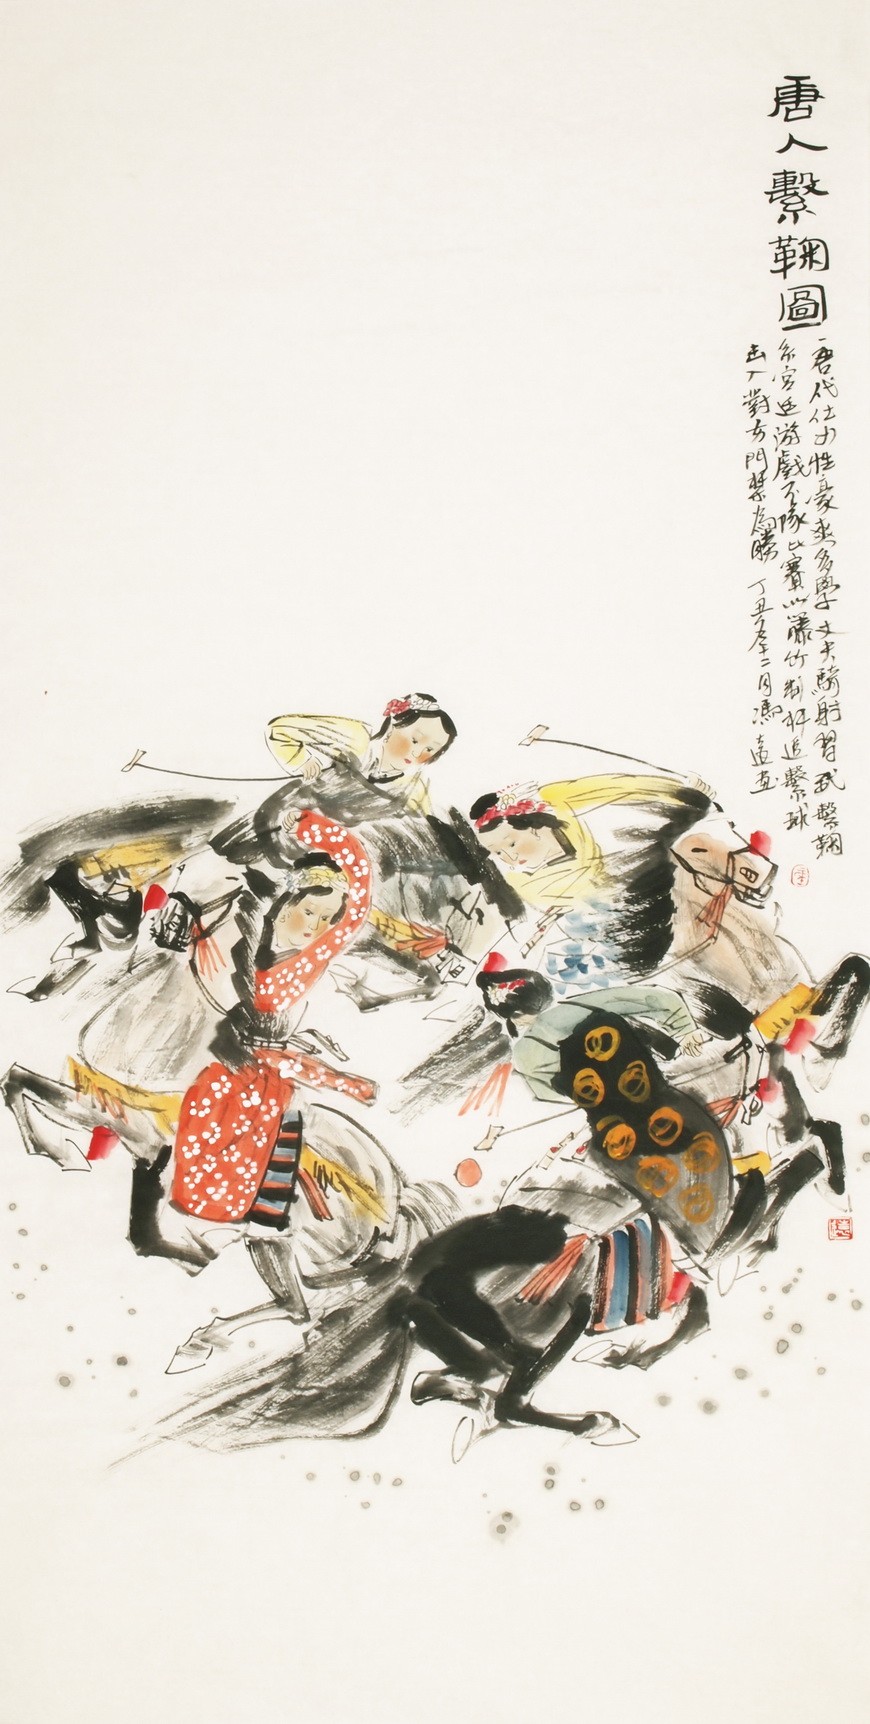 唐人繫鞠圖
唐代仕女性豪爽多學丈夫騎射習武繫鞠
系宮廷游戲分隊比賽以藤竹制杆追繫球
击入對方門禁為勝 丁丑年十二月馮遠画